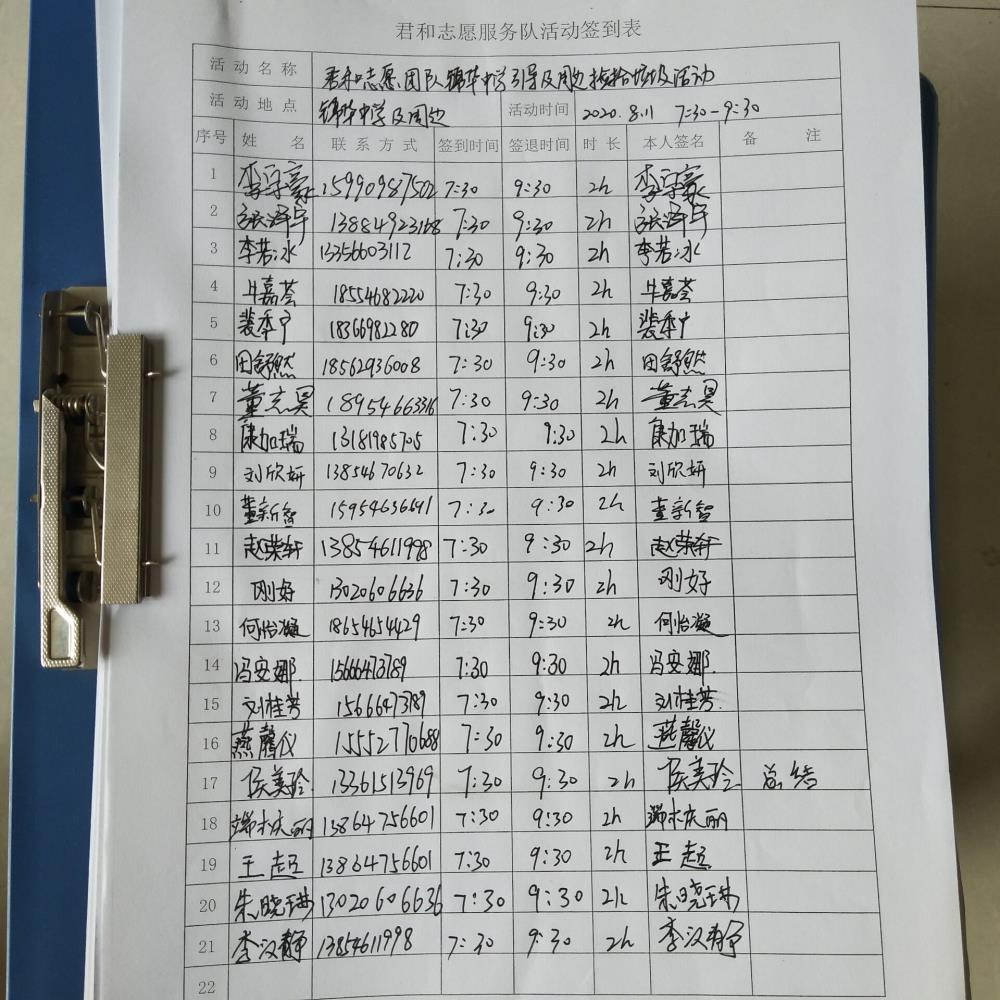 君和志愿服务队活动签到表
活动名称 君和志愿团队锦华中学引导及周边捡拾垃圾活动
活动地点 锦华中学及周边 活动时间 2020.8.11 7:30-9:30
序号 姓名 联系方式 签到时间 签退时间 时长 本人签名 备注
1 李宇豪 15990987502 7:30 9:30 2h 李宇豪
2 张泽宇 13884923168 7:30 9:30 2h 张泽宇
3 李若冰 13356603112 7:30 9:30 2h 李若冰
4 牛嘉荟 18554682220 7:30 9:30 2h 牛嘉荟
5 18366982280 7:30 9:30 2h
6 田舒然 18562936008 7:30 9:30 2h 田舒然
7 董志昊 18954663316 7:30 9:30 2h 董志昊
8 康加瑞 13181985705 7:30 9:30 2h 康加瑞
9 刘欣妍 13854670632 7:30 9:30 2h 刘欣妍
10 董新智 15954636691 7:30 9:30 2h 董新智
11 赵荣轩 13854611998 7:30 9:30 2h 赵荣轩
12 刚好 13020606636 7:30 9:30 2h 刚好
13 何怡凝 18654654429 7:30 9:30 2h 何怡凝
14 冯安娜 15666473789 7:30 9:30 2h 冯安娜
15 刘桂芳 15666473789 7:30 9:30 2h 刘桂芳
16 燕馨仪 15552770688 7:30 9:30 2h 燕馨仪
17 侯美玲 13361513969 7:30 9:30 2h 侯美玲 总结
18 端木庆丽 13864756601 7:30 9:30 2h 端木庆丽
19 王超 13864756601 7:30 9:30 2h 王超
20 朱晓琳 13020606636 7:30 9:30 2h 朱晓琳
21 李汉静 13854611998 7:30 9:30 2h 李汉静
22